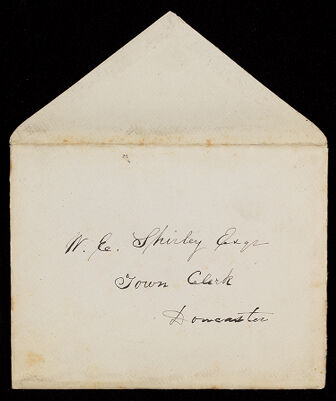 W. E. Shirley Esqr
Town Clerk
Doncaster